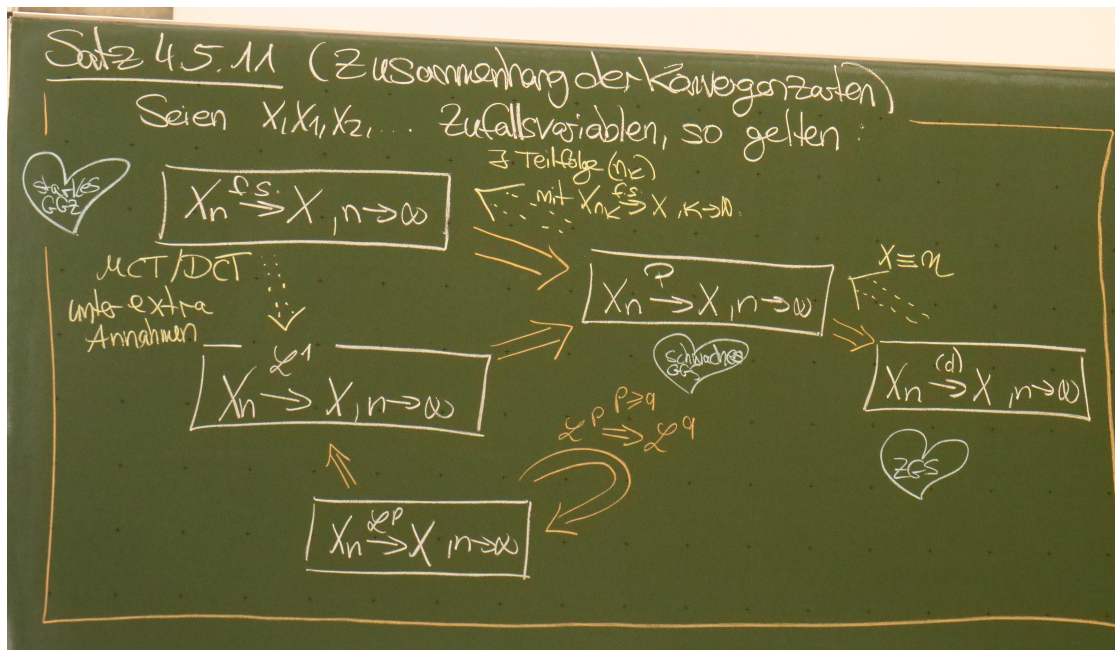 Satz 4.5.11 (Zusammenhang der Konvergenzarten)
Seien X, X1, X2, ... Zufallsvariablen, so gelten:
starkes
GGZ
Xn f.s.→ X, n→∞
∃ Teilfolge (nk)
mit Xnk f.s.→ X, k→∞.
MCT/DCT
unter extra
Annahmen
Xn P→ X, n→∞
X≡
schwaches
GGZ
Xn ℒ1→ X, n→∞
Xn (d)→ X, n→∞
p≥q
ℒp ⇒ ℒq
ZGS
Xn ℒp→ X, n→∞